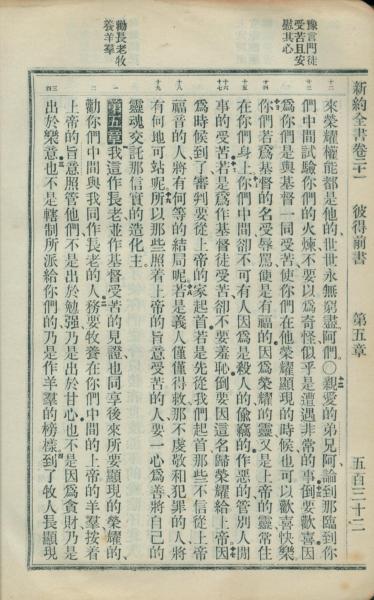 新約全書卷二十一 彼得前書 第五章 五百三十二
豫言門徒
受苦且安
慰其心
勸長老牧
養羊羣
十二
十三
十四
十五
十六
十七
十八
十九
一
二
三
四
來榮耀權能都是他的、世世永無窮盡阿們〇親愛的弟兄阿、論到那臨到你
們中間試驗你們的火煉不要以爲奇怪似乎是遭遇非常的事倒要歡喜因
爲你們是與基督一同受苦使你們在他榮耀顯現的時候也可以歡喜快樂
你們若爲基督的名受辱罵便是有福的因爲榮耀的靈又是上帝的靈常住
在你們身上你們中間卻不可有人因爲是殺人的偷竊的作惡的管別人閒
事的受苦若是爲作基督徒受苦卻不要羞恥倒要因這名歸榮耀給上帝因
爲時候到了審判要從上帝的家起首若是先從我們起首那些不信從上帝
福音的人將有何等的結局呢若是義人僅僅得救那不虔敬和犯罪的人將
有何地可站呢所以那些照着上帝的旨意受苦的人要一心爲善將自己的
靈魂交託那信實的造化主
第五章 我這作長老並作基督受苦的見證也同享後來所要顯現的榮耀的、
勸你們中間與我同作長老的人務要牧養在你們中間的上帝的羊羣按着
上帝的旨意照管他們不是出於勉強乃是出於甘心也不是因爲貪財乃是
出於樂意也不是轄制所派給你們的乃是作羊羣的榜樣到了牧人長顯現